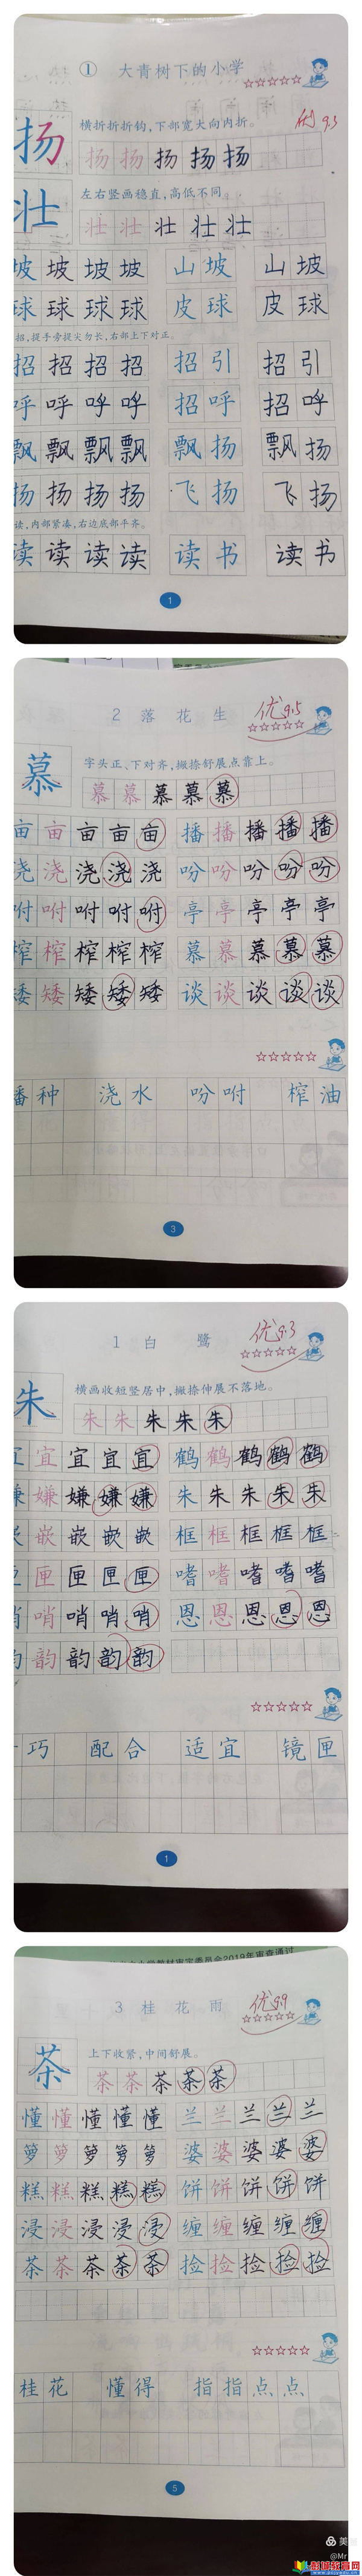 ① 大青树下的小学
优 9.3
扬 横折折折钩,下部宽大向内折。
扬 扬 扬 扬 扬
壮 左右竖画稳直,高低不同
壮 壮 壮 壮 壮
坡 坡 坡 坡 山 坡 山 坡
球 球 球 球 皮 球 皮 球
招,提手旁提尖勿长,右部上下对正。
招 招 招 招 招 引 招 引
呼 呼 呼 呼 招 呼 招 呼
飘 飘 飘 飘 飘 扬 飘 扬
扬 扬 扬 扬 飞 扬 飞 扬
读,内部紧凑,右边底部平齐。
读 读 读 读 读 书 读 书
1
2 落 花 生
优 9.5
慕 字头正、下对齐,撇捺舒展点靠上。
慕 慕 慕 慕 慕
亩 亩 亩 亩 亩 播 播 播 播 播
浇 浇 浇 浇 浇 吩 吩 吩 吩 吩
咐 咐 咐 咐 咐 亭 亭 亭 亭 亭
榨 榨 榨 榨 榨 慕 慕 慕 慕 慕
矮 矮 矮 矮 矮 谈 谈 谈 谈 谈
播 种 浇 水 吩 咐 榨 油
3
1 白 鹭
优 9.3
朱 横画收短竖居中,撇捺伸展不落地。
朱 朱 朱 朱 朱
宜 宜 宜 宜 宜 鹤 鹤 鹤 鹤 鹤
嫌 嫌 嫌 嫌 嫌 朱 朱 朱 朱 朱
嵌 嵌 嵌 嵌 嵌 框 框 框 框 框
匣 匣 匣 匣 匣 嗜 嗜 嗜 嗜 嗜
哨 哨 哨 哨 哨 恩 恩 恩 恩 恩
韵 韵 韵 韵 韵
巧 配 合 适 宜 镜 匣
1
教材审定委员会2019年审查通过
3 桂 花 雨
优 9.9
茶 上下收紧,中间舒展。
茶 茶 茶 茶 茶
懂 懂 懂 懂 懂 兰 兰 兰 兰 兰
箩 箩 箩 箩 箩 婆 婆 婆 婆 婆
糕 糕 糕 糕 糕 饼 饼 饼 饼 饼
浸 浸 浸 浸 浸 缠 缠 缠 缠 缠
茶 茶 茶 茶 茶 捡 捡 捡 捡 捡
桂 花 懂 得 指 指 点 点
5
美
@Mr